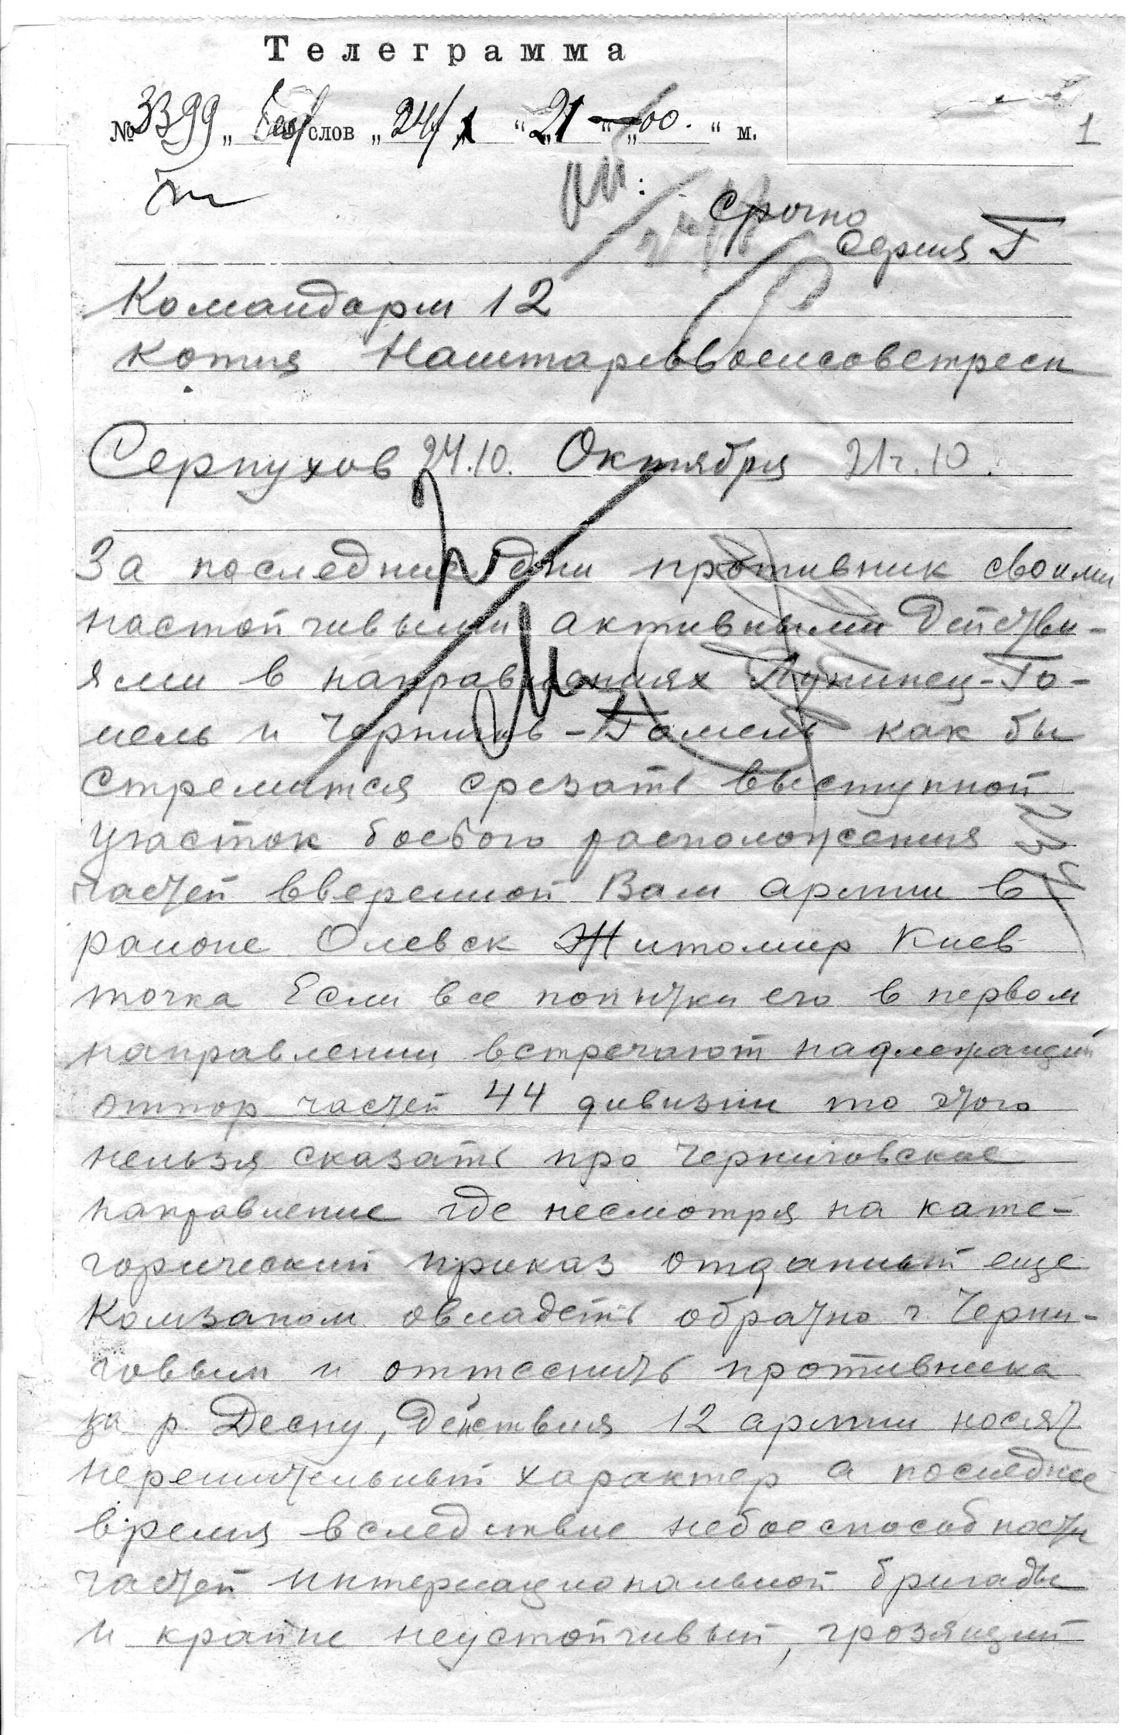 Телеграмма
№ 3399 „ слов „ 24/ “ 21 “ „ 00. “ м.
1
Срочно
Серия Г
Командарм 12
копия Наштареввоенсоветресп
Серпухов 24.10. Октября 21ч.10.
За последние дни противник своими
настойчивыми активными действи-
ями в направлениях Лунинец-Го-
мель и Чернигов-Гомель как бы
стремится срезать выступной
участок боевого расположения
частей вверенной Вам армии в
районе Олевск Житомир Киев
точка Если все попытки его в первом
направлении встречают надлежащий
отпор частей 44 дивизии то этого
нельзя сказать про Черниговское
направление где несмотря на кате-
горический приказ отданный еще
Комзапом овладеть обратно г. Черни-
говым и оттеснить противника
за р. Десну, действия 12 армии носят
нерешительный характер а последнее
время вследствие небоеспособности
частей интернациональной бригады
и крайне неустойчивый, грозящий